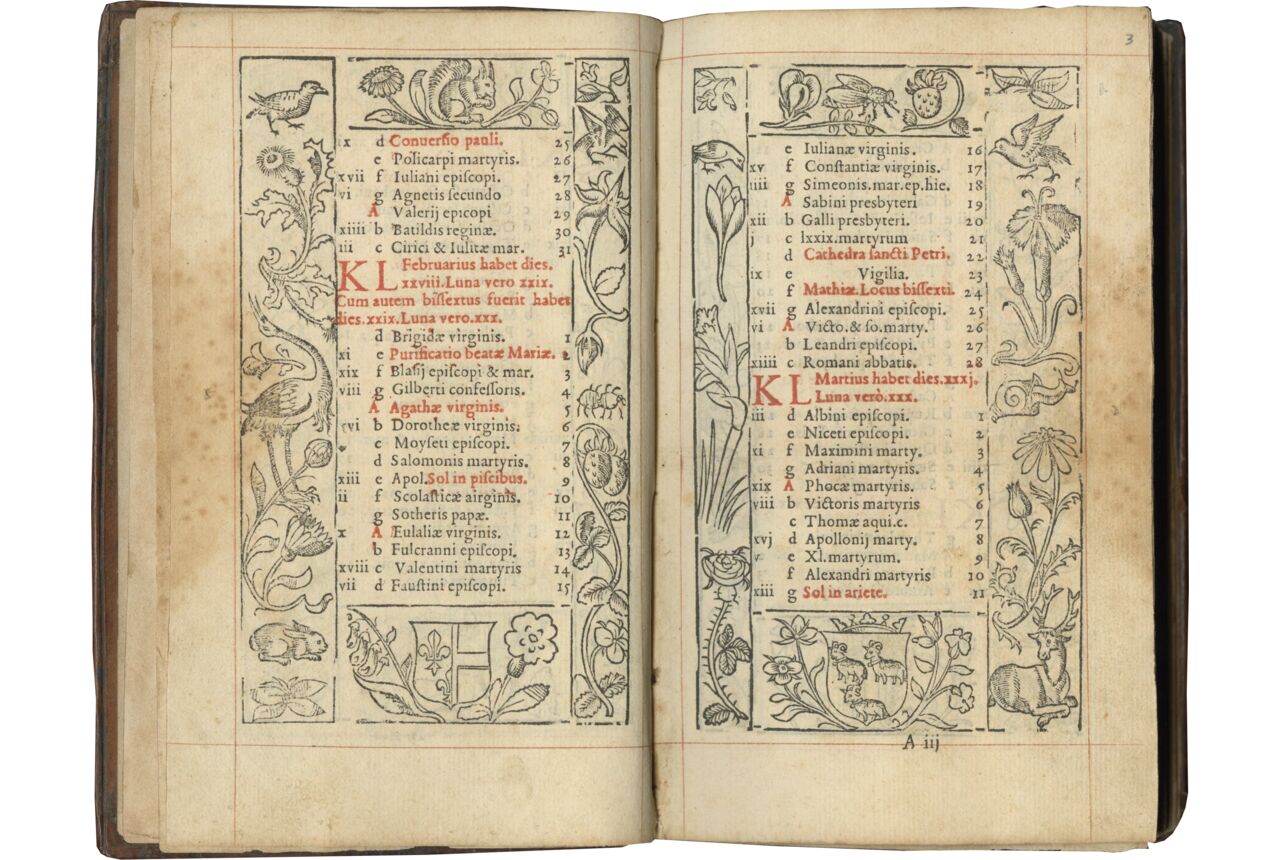 ix d Conuersio pauli. 25
e Policarpi martyris. 26
xvii f Iuliani episcopi. 27
vi g Agnetis secundo 28
A Valerij epicopi 29
xiiii b Batildis reginæ. 30
iii c Cirici & Iulitæ mar. 31
KL Februarius habet dies.
xxviii. Luna vero xxix.
Cum autem bissextus fuerit habet
dies.xxix.Luna vero.xxx.
d Brigidæ virginis. 1
xi e Purificatio beatæ Mariæ. 2
xix f Blasij episcopi & mar. 3
viii g Gilberti confessoris. 4
A Agathæ virginis. 5
xvi b Dorotheæ virginis. 6
c Moyseti episcopi. 7
d Salomonis martyris. 8
xiii e Apol.Sol in piscibus. 9
ii f Scolasticæ airginis. 10
g Sotheris papæ. 11
x A Eulaliæ virginis. 12
b Fulcranni episcopi. 13
xviii c Valentini martyris 14
vii d Faustini episcopi. 15
3
e Iulianæ virginis. 16
xv f Constantiæ virginis. 17
iiii g Simeonis.mar.ep.hie. 18
A Sabini presbyteri 19
xii b Galli presbyteri. 20
j c lxxix.martyrum 21
d Cathedra sancti Petri. 22
ix e Vigilia. 23
f Mathiæ.Locus bissexti. 24
xvii g Alexandrini episcopi. 25
vi A Victo.& so.marty. 26
b Leandri episcopi. 27
xiiii c Romani abbatis. 28
KL Martius habet dies.xxxj.
Luna verò.xxx.
iii d Albini episcopi. 1
e Niceti episcopi. 2
xi f Maximini marty. 3
g Adriani martyris. 4
xix A Phocæ martyris. 5
viii b Victoris martyris 6
c Thomæ aqui.c. 7
xvj d Apollonij marty. 8
v e Xl.martyrum. 9
f Alexandri martyris 10
xiii g Sol in ariete. 11
A iij